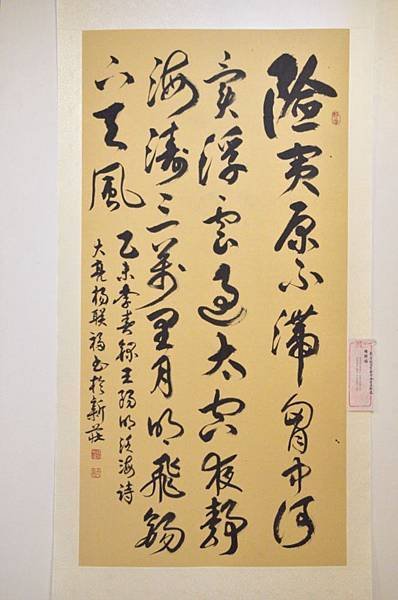 險夷原不滯胷中何
異浮雲過太空夜靜
海濤三萬里月明飛錫
下天風
乙未季春錄王陽明泛海詩
大亮楊联福书於新莊